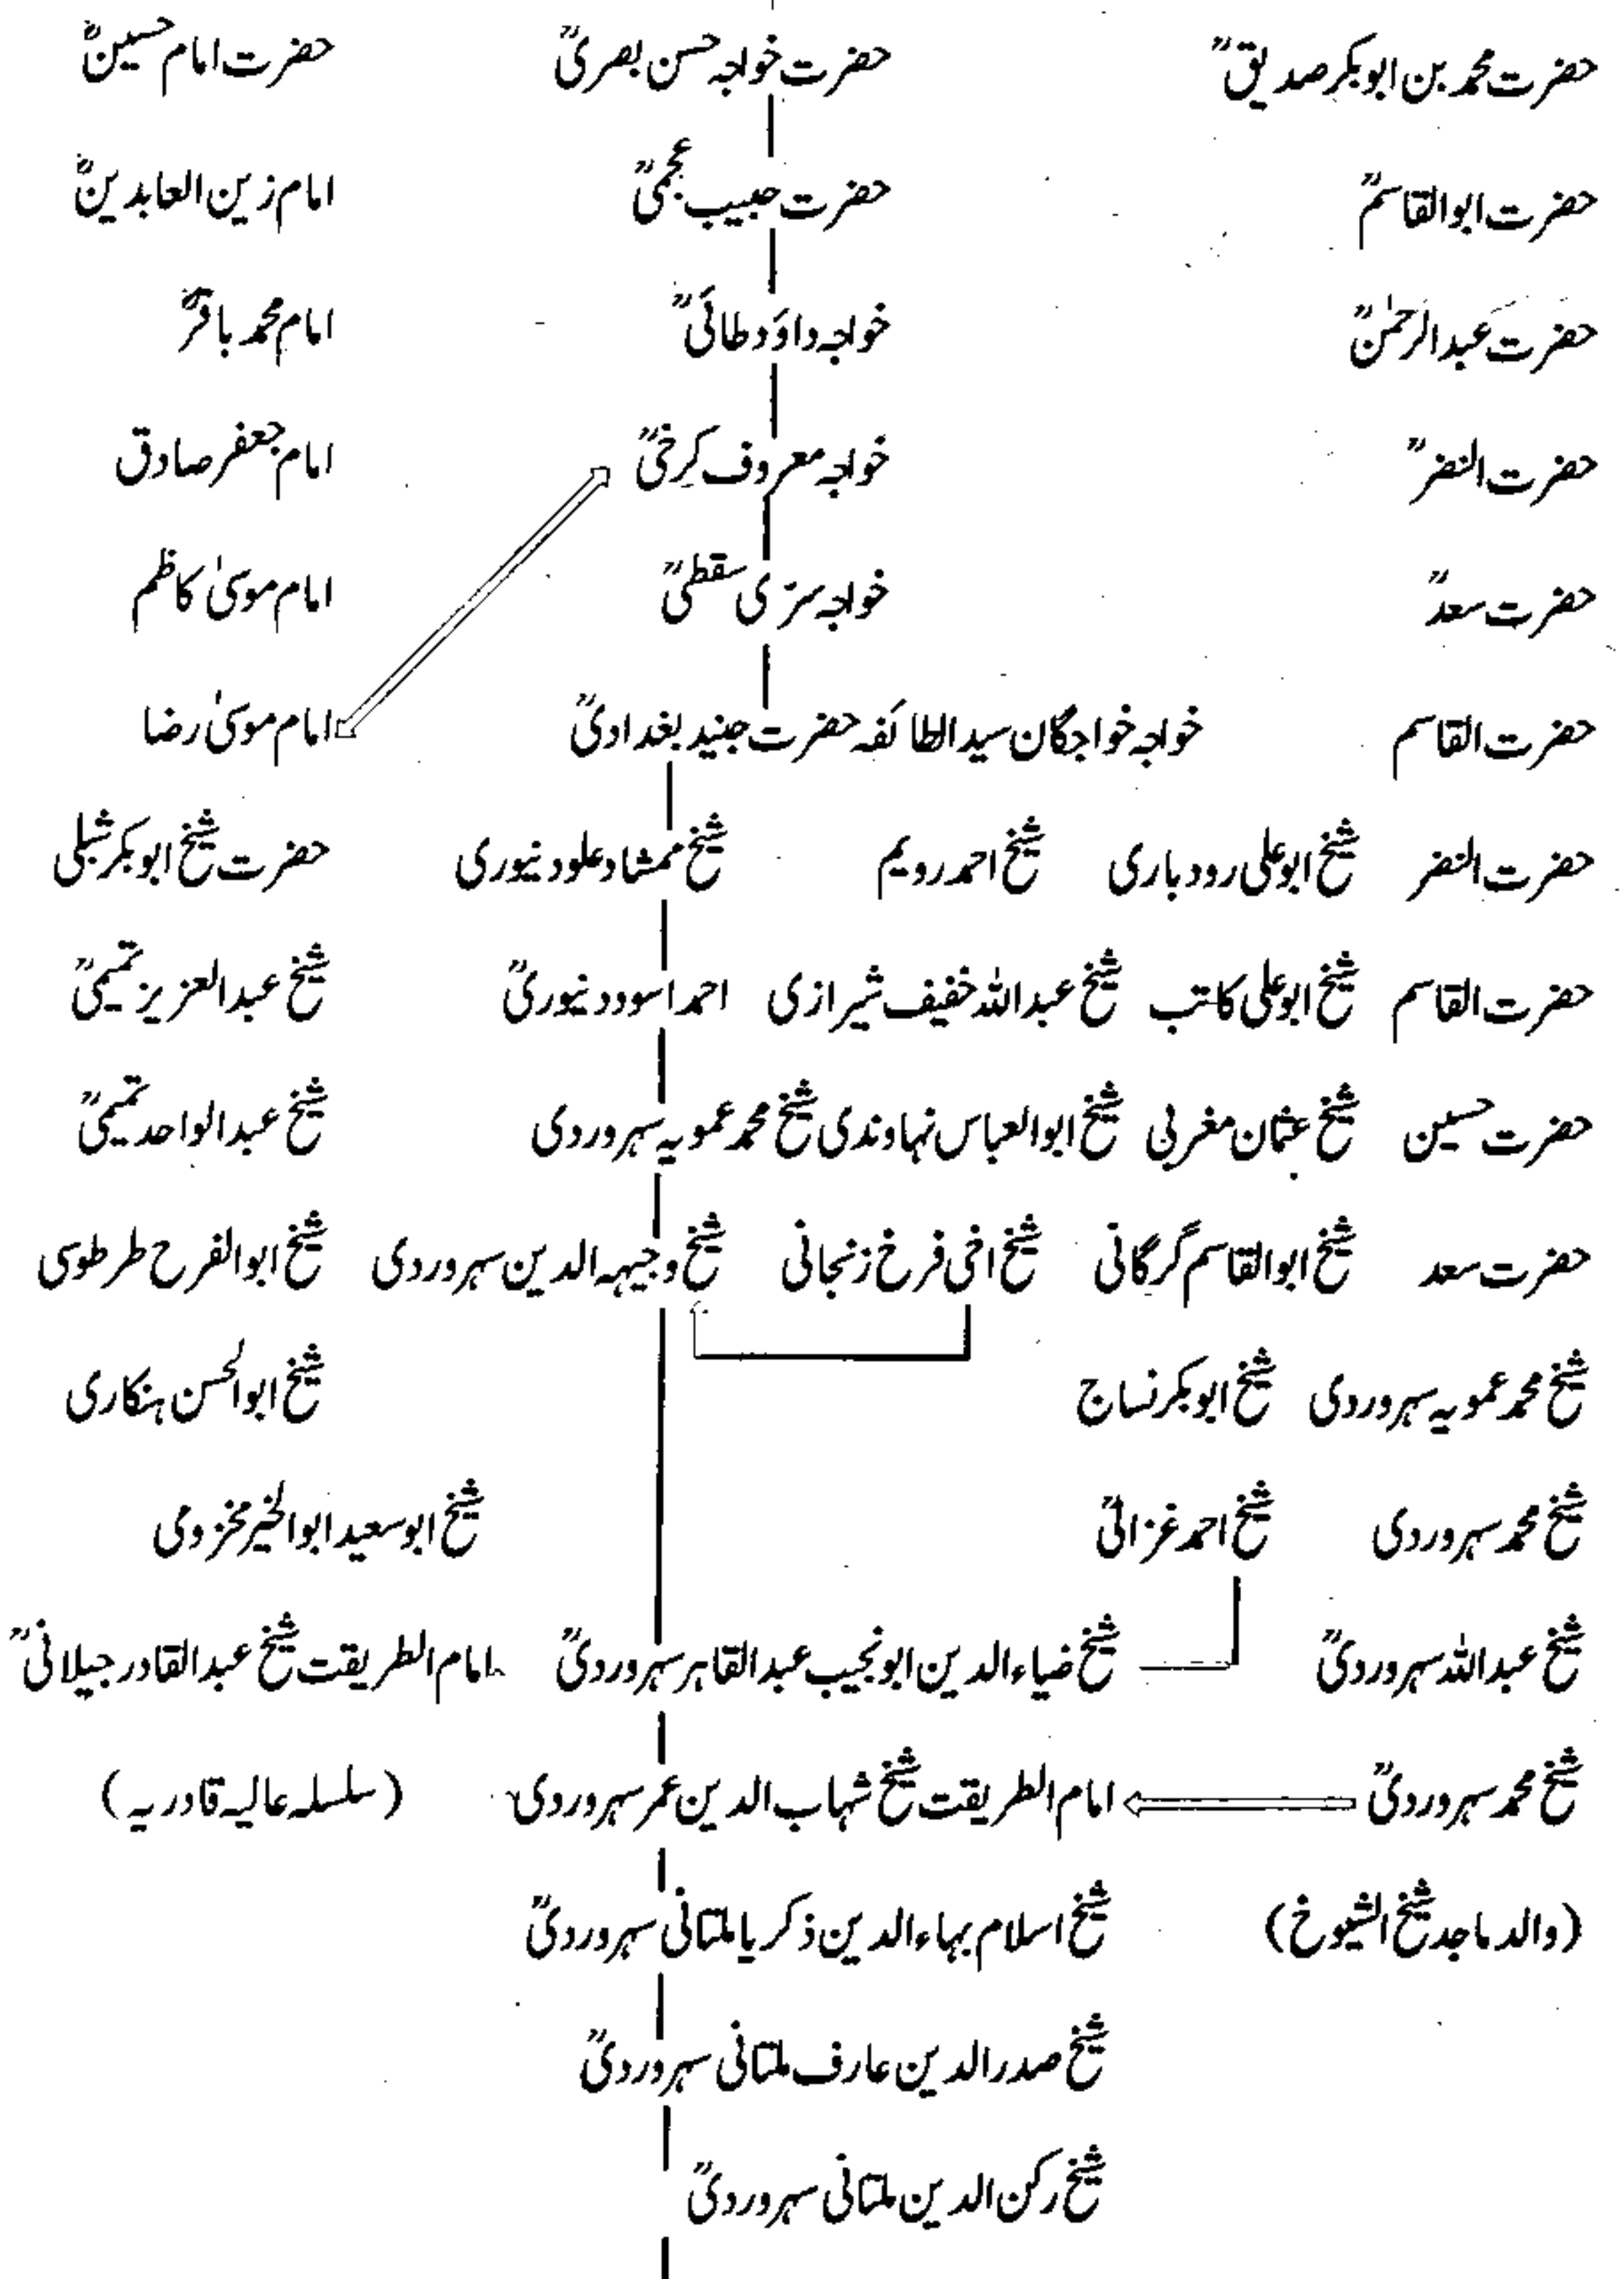 حضرت محمد بن ابوبکر صدیقؓ حضرت خواجہ حسن بصریؒ حضرت امام حسینؓ
حضرت ابوالقاسمؒ حضرت حبیب عجمیؒ امام زین العابدینؓ
حضرت عبدالرحمٰنؒ خواجہ داؤد طائیؒ امام محمد باقرؓ
حضرت النضرؒ خواجہ معروف کرخیؒ امام جعفر صادق
حضرت سعدؒ خواجہ سرّی سقطیؒ امام موسیٰ کاظم
حضرت القاسم خواجہ خواجگان سید الطائفہ حضرت جنید بغدادیؒ امام موسیٰ رضا
حضرت النضر شیخ ابوعلی رودباری شیخ احمد رویم شیخ ممشاد علودنیوری حضرت شیخ ابوبکر شبلی
حضرت القاسم شیخ ابوعلی کاتب شیخ عبداللہ خفیف شیرازی احمد اسود دنیوریؒ شیخ عبدالعزیز تمیمیؒ
حضرت حسین شیخ عثمان مغربی شیخ ابوالعباس نہاوندی شیخ محمد عمویہ سہروردی شیخ عبدالواحد تمیمیؒ
حضرت سعد شیخ ابوالقاسم گرگانی شیخ اخی فرخ زنجانی شیخ وجیہہ الدین سہروردی شیخ ابوالفرح طرطوسی
شیخ محمد عمویہ سہروردی شیخ ابوبکر نساج شیخ ابوالحسن ہنکاری
شیخ محمد سہروردی شیخ احمد غزالیؒ شیخ ابوسعید ابوالخیر مخزومی
شیخ عبداللہ سہروردیؒ شیخ ضیاء الدین ابونجیب عبدالقاہر سہروردیؒ امام الطریقت شیخ عبدالقادر جیلانیؒ
شیخ محمد سہروردیؒ امام الطریقت شیخ شہاب الدین عمر سہروردی (سلسلہ عالیہ قادریہ)
(والد ماجد شیخ الشیوخ) شیخ اسلام بہاء الدین ذکریا ملتانی سہروردیؒ
شیخ صدر الدین عارف ملتانی سہروردیؒ
شیخ رکن الدین ملتانی سہروردیؒ